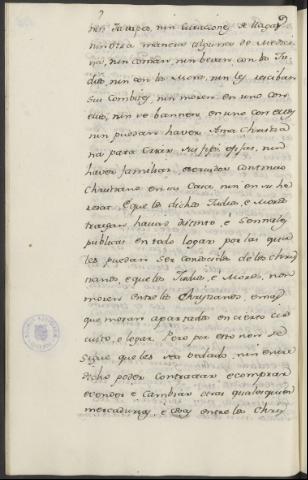 nin Jarapes, nin curaciones de llagas
nin otra manera alguna de Medeci-
na, nin coman, nin bevan con los Ju-
dios, nin con los Moros, nin les reciban
sus combites, nin moren en uno con
ellos, nin se bannen en uno con ellos,
nin puedan haver Ama Christia-
na para criar sus fijos, nin
haver familiar, servidor continuo
Christiano en su Casa, nin en su he-
redat. E que los dichos Judios, e Moros
traygan havito distinto, e Sennales
publicas en todo logar, por las qua-
les puedan ser conoscidos de los Chris-
tianos, e que los Judios, e Moros, non
moren entre los Christianos, e mas
que moren apartados en cierto cir-
cuito, e logar. Pero por esto non se
sigue que les sea vedado, nin entre-
dicho poder contractar e comprar
e vender e cambiar otras qualesquier
mercadurias, e cosas entre los Chris-